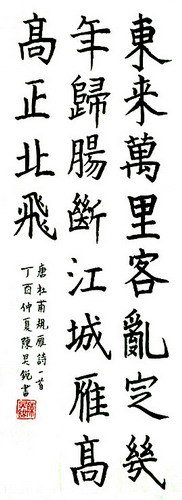 東来萬里客亂定幾
年歸腸斷江城雁高
高正北飛
唐杜甫規雁詩一首
丁酉仲夏陳昊銳書